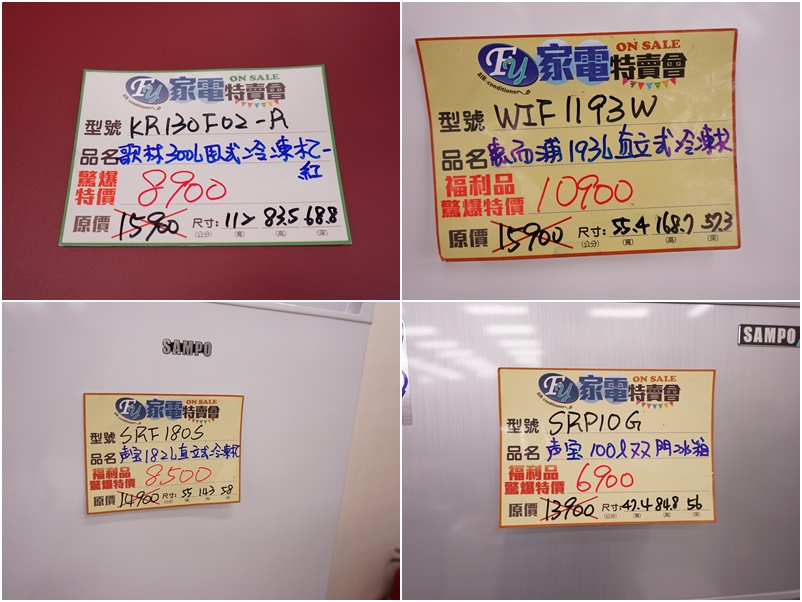 FY 家電特賣會 ON SALE
AIR-conditioner
型號 KR130F02-A
品名 歌林300L臥式冷凍櫃-紅
驚爆特價 8900
原價 15900 尺寸: 112 83.5 68.8
(公分) (寬) (高) (深)
FY 家電特賣會 ON SALE
AIR-conditioner
型號 WIF1193W
品名 惠而浦193L直立式冷凍櫃
福利品
驚爆特價 10900
原價 15900 尺寸: 55.4 168.7 57.3
(公分) (寬) (高) (深)
SAMPO
FY 家電特賣會 ON SALE
型號 SRF180S
品名 声宝182L直立式冷凍櫃
福利品
驚爆特價 8500
原價 14900 尺寸: 55 143 58
SAMPO
FY 家電特賣會 ON SALE
AIR-conditioner
型號 SRP10G
品名 声宝100l双門冰箱
福利品
驚爆特價 6900
原價 13900 尺寸: 47.4 84.8 56
(公分) (寬) (高) (深)